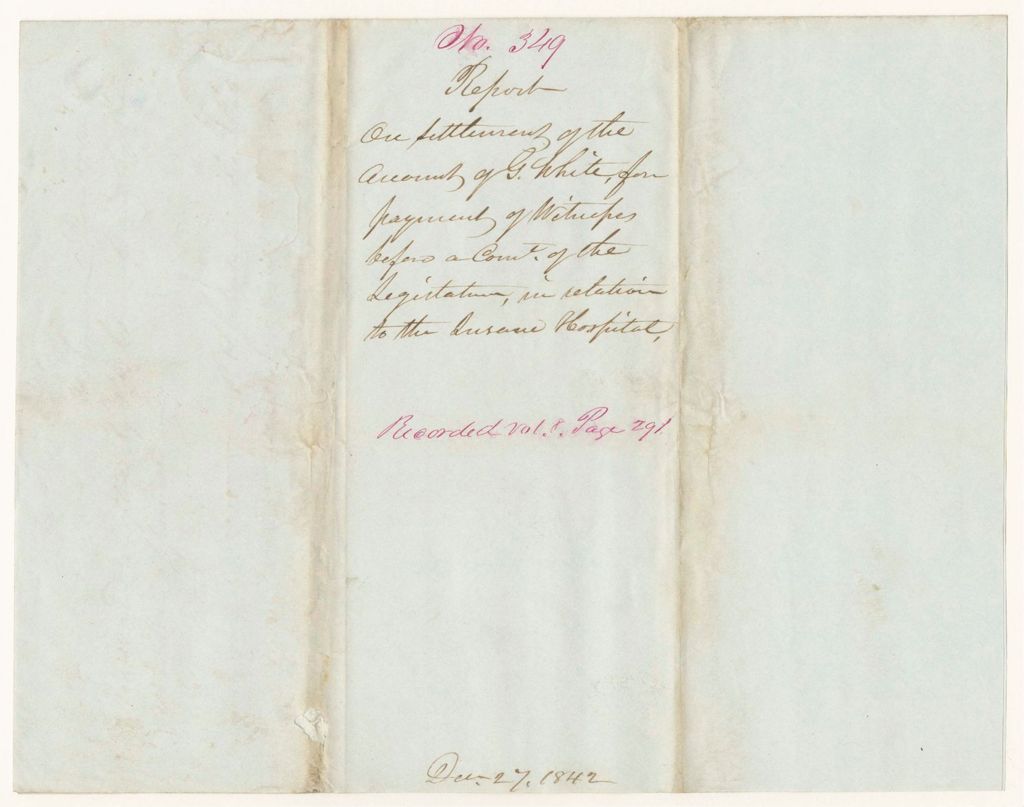 No. 349
Report
On settlement of the
account of G. White, for
payment of Witnesses
before a Comt. of the
Legislature, in relation
to the Insane Hospital,
Recorded Vol. 8. Page 291
Dec. 27, 1842